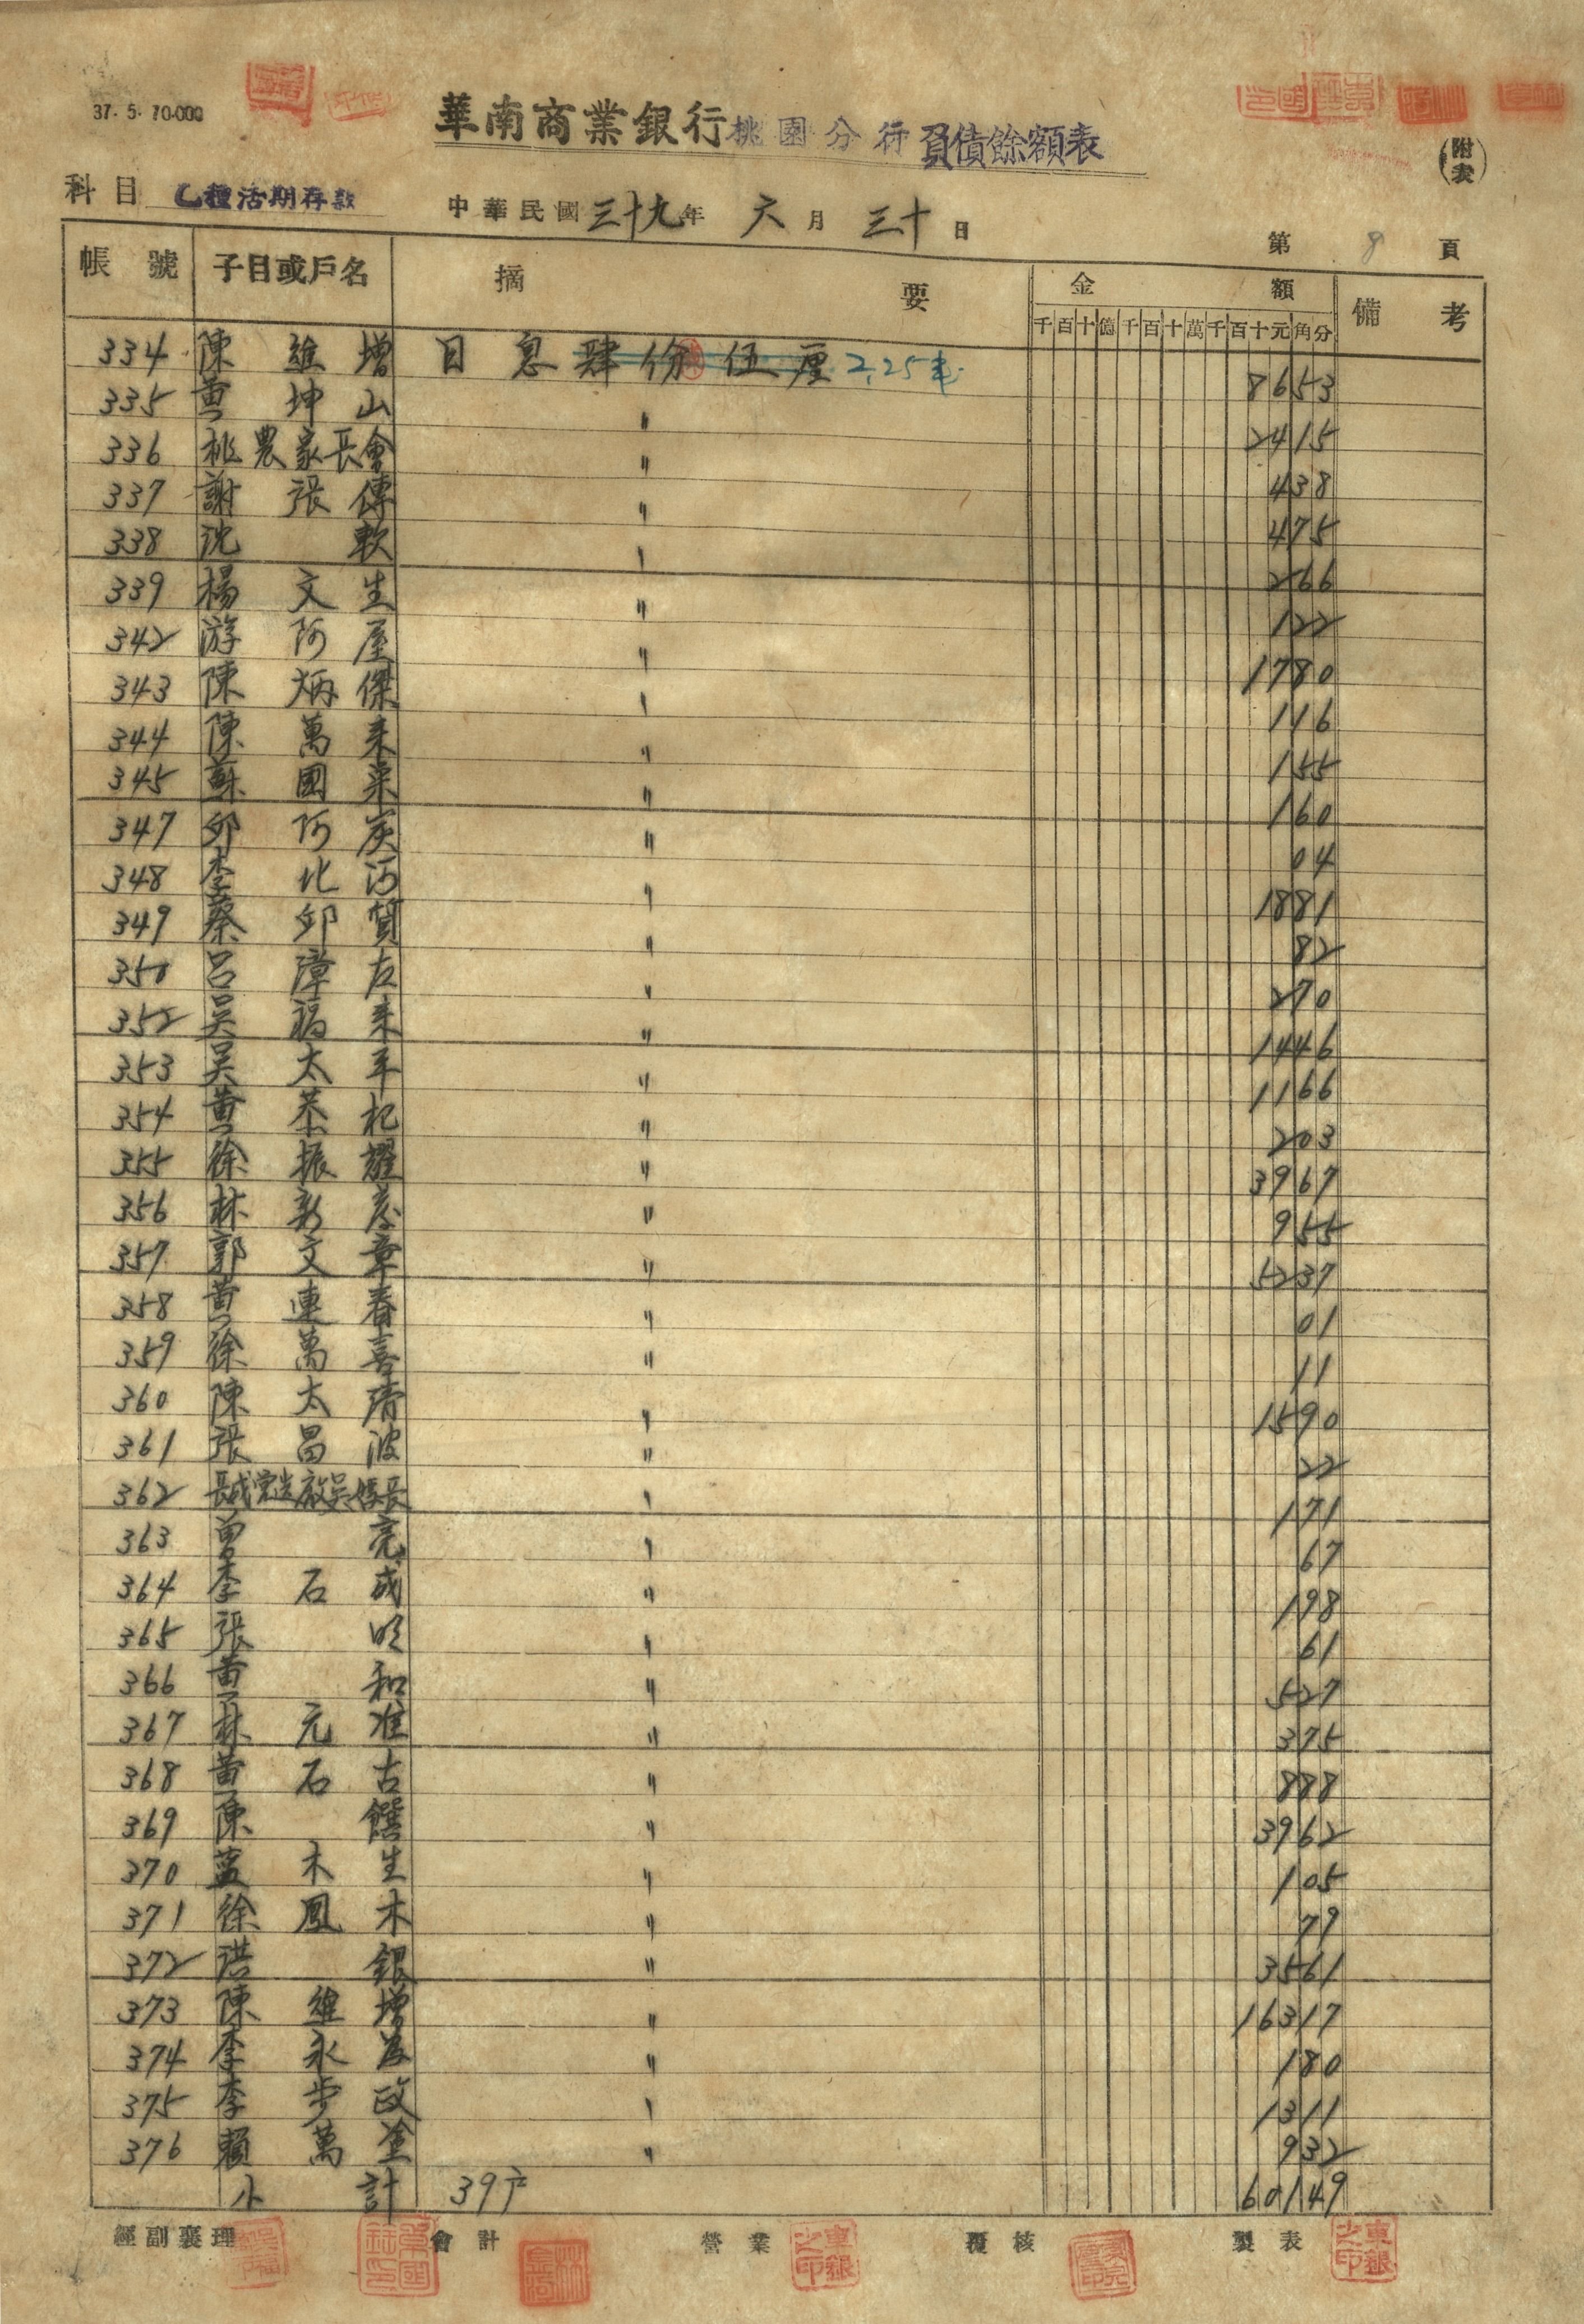 37. 5. 70.000
華南商業銀行桃園分行負債餘額表
(附表)
科目 乙種活期存款 中華民國三十九年 六月 三十日
第 9 頁
帳號 子目或戶名 摘要 金額 備考
千百十億千百十萬千百十元角分
334 陳維增 日息肆份伍厘 2.25 8653
335 黃坤山 〃 2415
336 桃農家長會 〃 438
337 謝張傳 〃 475
338 沈軟 〃 266
339 楊文生 〃 122
342 游阿屋 〃 1780
343 陳炳傑 〃 116
344 陳萬來 〃 155
345 蘇國棠 〃 160
347 邱阿炭 〃 04
348 李北河 〃 1881
349 蔡邱質 〃 82
350 呂漳友 〃 270
352 吳福來 〃 1446
353 吳太平 〃 1166
354 黃恭杞 〃 203
355 徐振耀 〃 3967
356 林彩彥 〃 955
357 郭文章 〃 5237
358 黃連春 〃 01
359 徐萬喜 〃 11
360 陳太清 〃 1590
361 張昌波 〃 22
362 長成營造廠吳 長 〃 171
363 曾亮 〃 67
364 李石成 〃 198
365 張明 〃 61
366 黃和 〃 527
367 林元准 〃 375
368 黃石古 〃 888
369 陳饌 〃 3962
370 藍木生 〃 105
371 徐鳳木 〃 79
372 洪銀 〃 3561
373 陳維增 〃 16317
374 李永 〃 180
375 李步政 〃 1311
376 賴萬塗 〃 932
小計 39戶 60149
經副襄理 會計 營業 覆核 製表